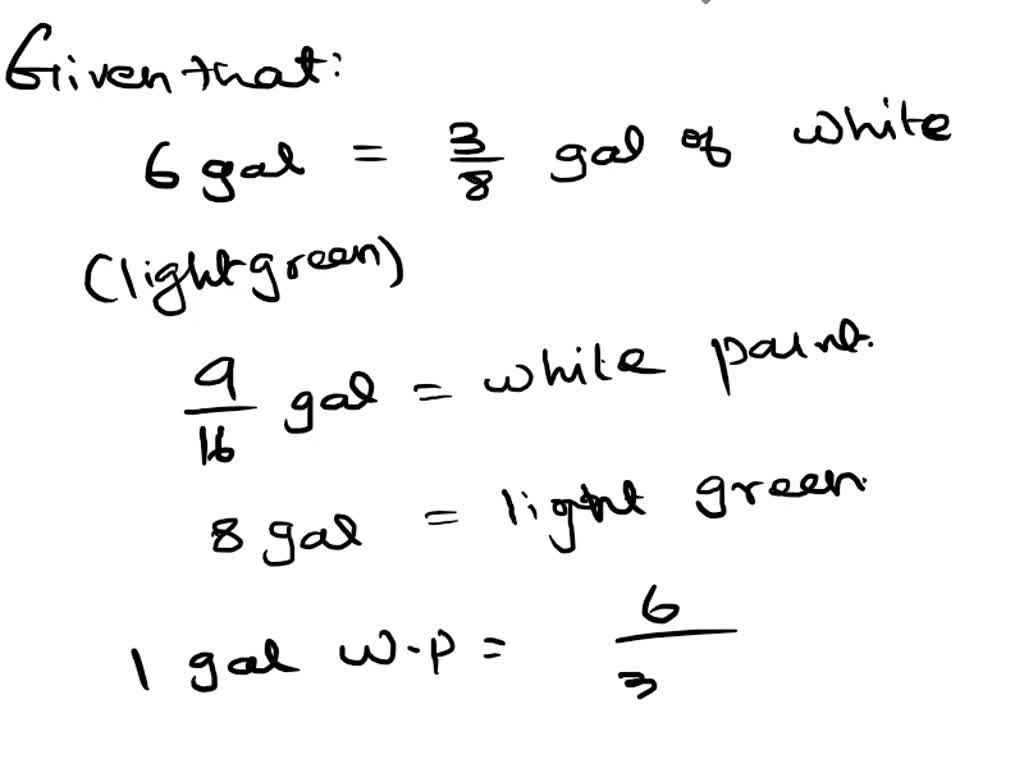 Given that:
6 gal = 3/8 gal of white
(light green)
9/16 gal = white paint.
8 gal = light green.
1 gal w.p = 6/3